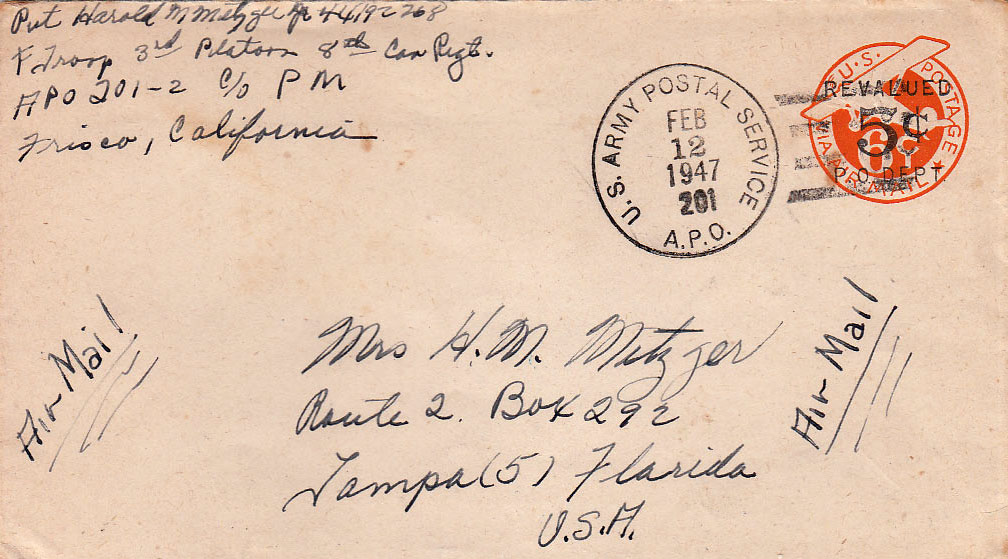 Pvt Harold M Metzger Jr 44192768
F Troop 3rd Platoon 8th Cav Regt.
APO 201-2 C/o P M
Frisco, California
U.S. ARMY POSTAL SERVICE
FEB
12
1947
201
A.P.O.
U.S. POSTAGE
REVALUED
5¢
6¢
P.O. DEPT.
VIA AIR MAIL
Air Mail
Air Mail
Mrs H. M. Metzger
Route 2. Box 292
Tampa (5) Florida
U.S.A.